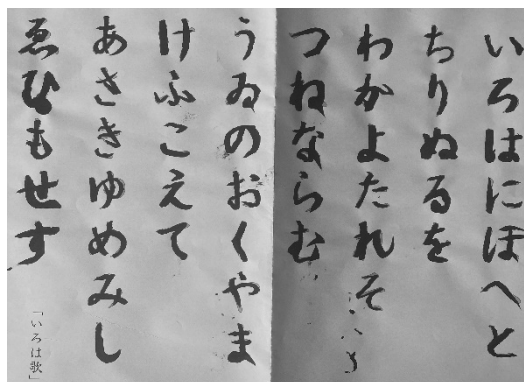 いろはにほへと
ちりぬるを
わかよたれそ
つねならむ
うゐのおくやま
けふこえて
あさきゆめみし
ゑひもせす
「いろは歌」